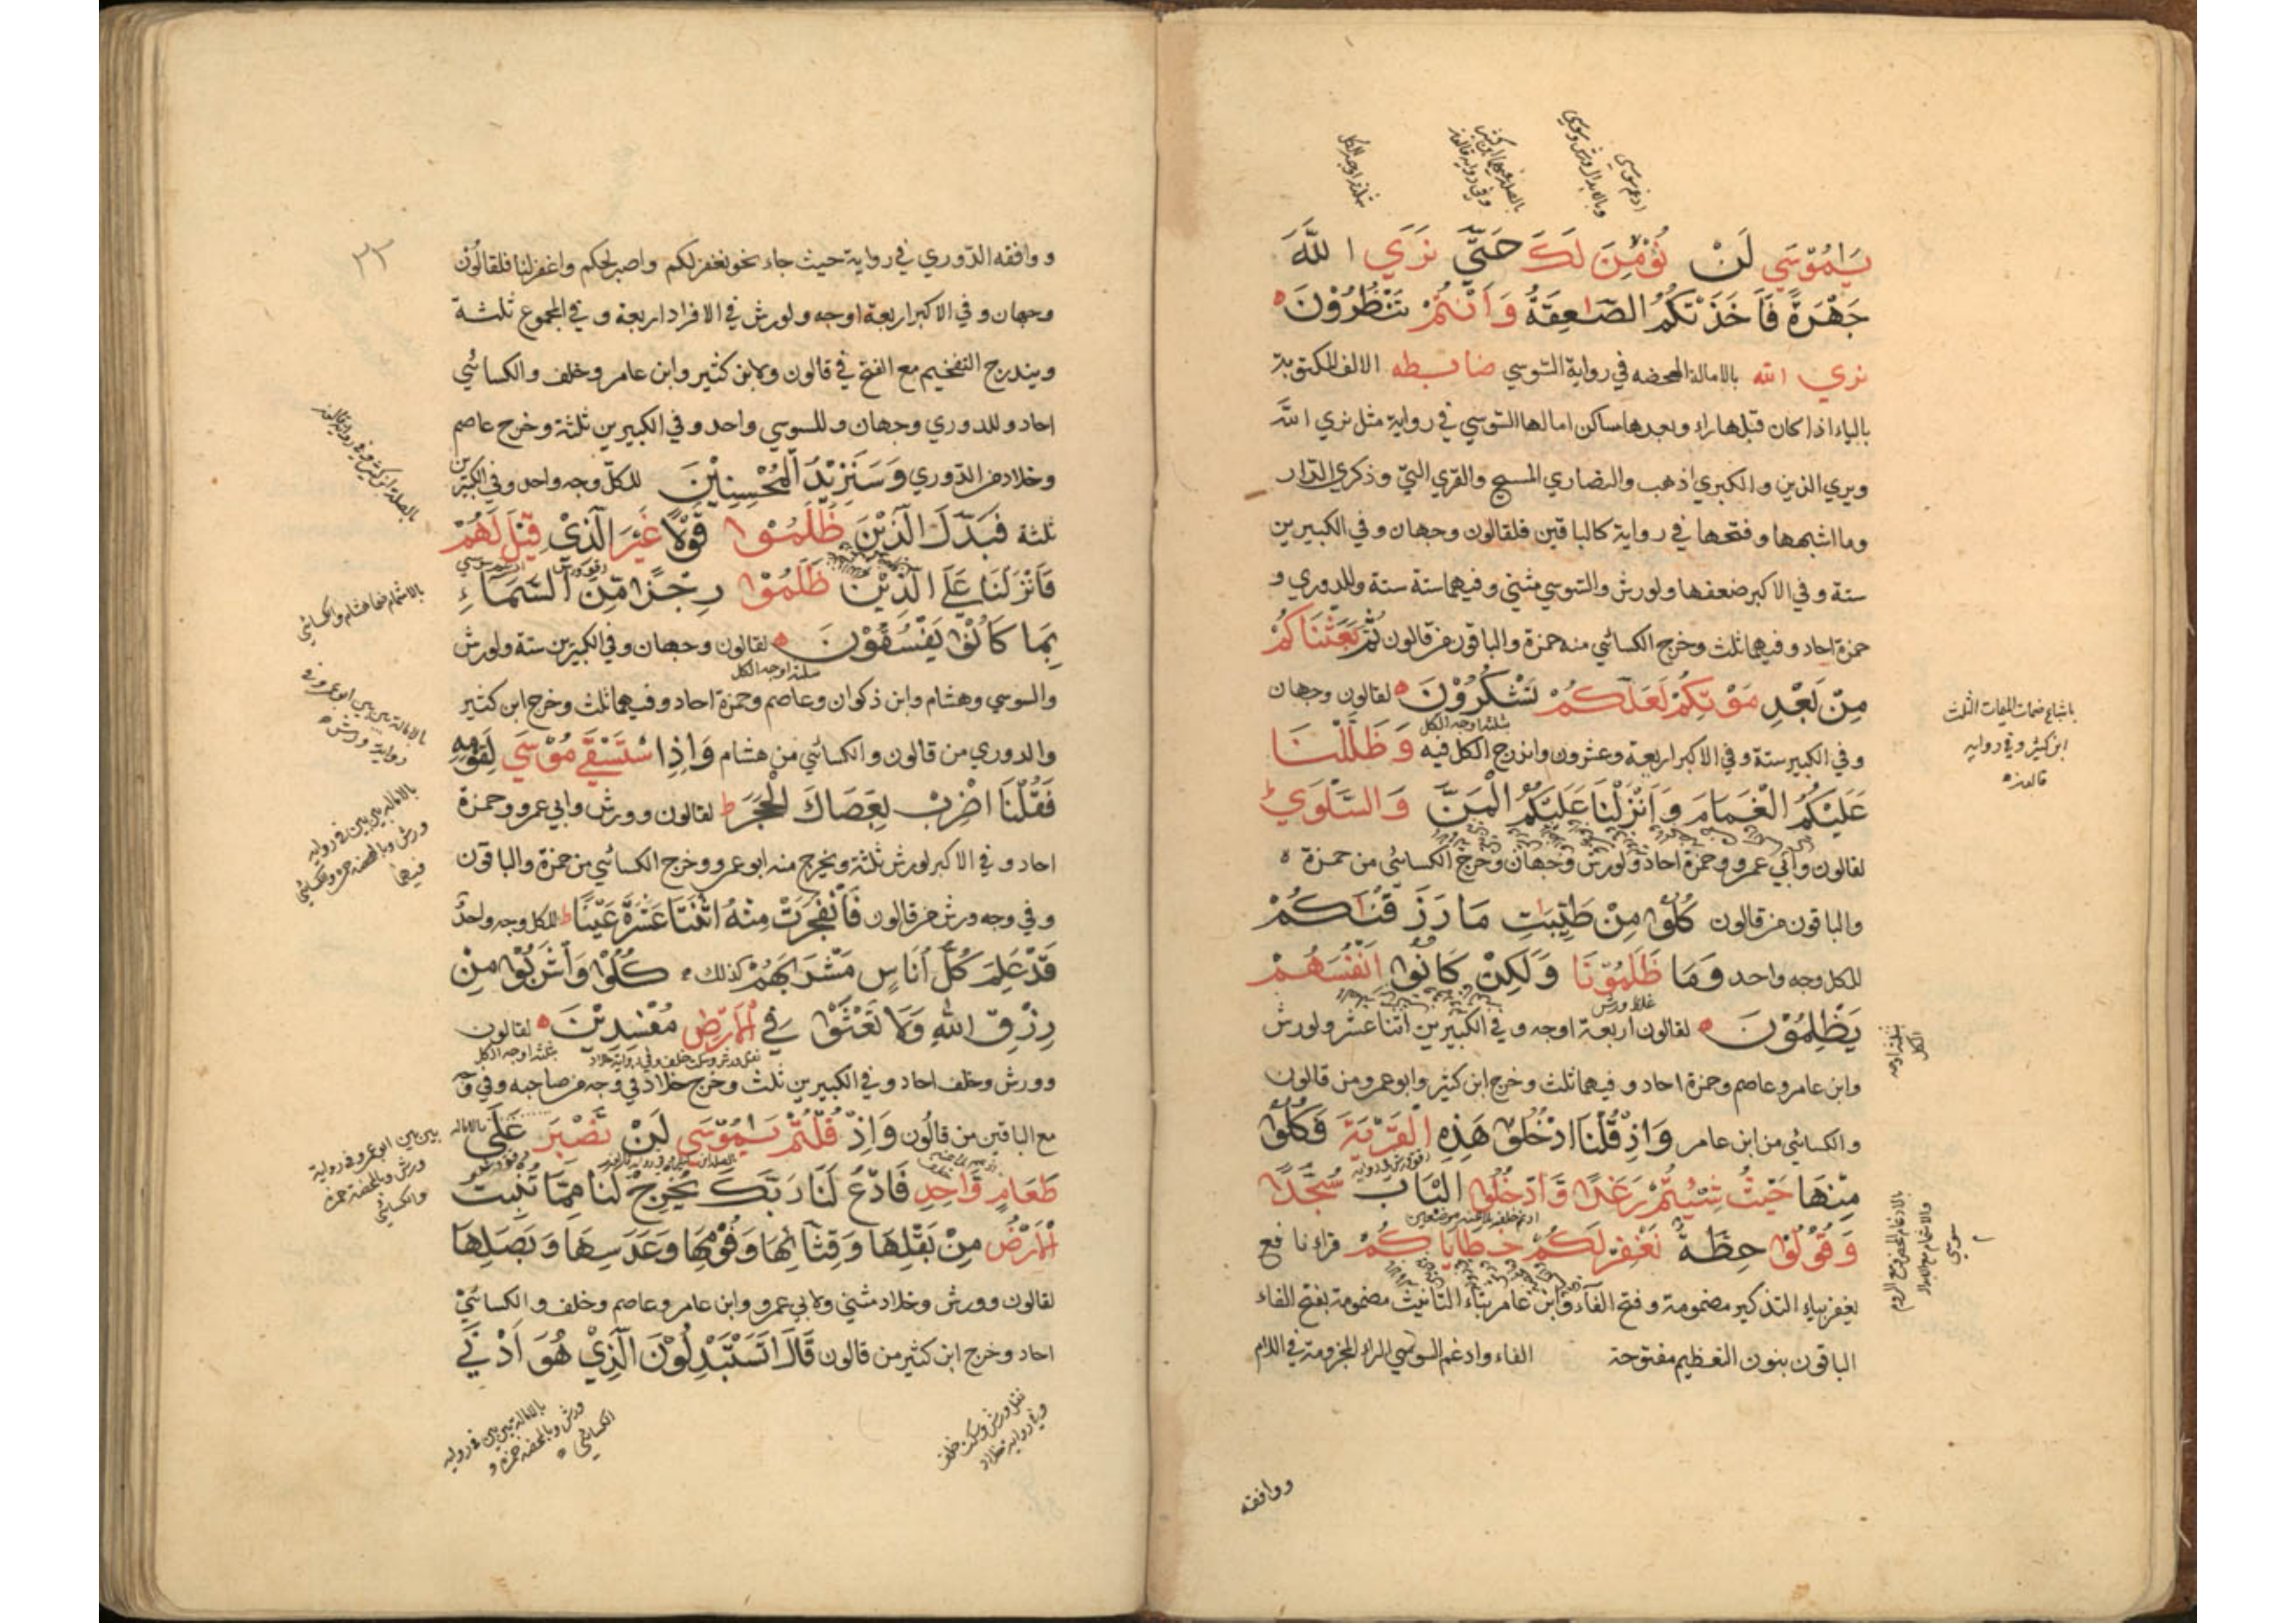 يَامُوسَي لَنْ نُؤْمِنَ لَكَ حَتَّي نَرَي اللَّهَ
جَهْرَةً فَأَخَذَتْكُمُ الصَّاعِقَةُ وَأَنْتُمْ تَنْظُرُوْنَ
نري الله بالامالة المحضه في رواية السّوسي ضابطه الالف المكتوبة
بالياء اذا كان قبلها راء وبعدها ساكن امالها السّوسي في رواية مثل نري الله
ويري الذين والكبري اذهب والنصاري المسيح والقري التي وذكري الدّار
وما اشبهها وفتحها في رواية كالباقين فلقالون وجهان وفي الكبيرين
ستة وفي الاكبر ضعفها ولورش والسّوسي مثني وفيهما ستة ستة وللدوري و
حمزة احاد وفيهما ثلث وخرج الكسائي منه حمزة والباقون من قالون ثُمَّ بَعَثْنَاكُمْ
مِنْ بَعْدِ مَوْتِكُمْ لَعَلَّكُمْ تَشْكُرُوْنَ لقالون وجهان
ثلثة اوجه الكل
وفي الكبير ستة وفي الاكبر اربعة وعشرون واندرج الكل فيه وَظَلَّلْنَا
عَلَيْكُمُ الْغَمَامَ وَاَنْزَلْنَا عَلَيْكُمُ الْمَنَّ وَالسَّلْوَي
لقالون وابي عمرو وحمزة احاد ولورش وجهان وخرج الكسائي من حمزة
والباقون من قالون كُلُوْا مِنْ طَيِّبٰتِ مَا رَزَقْنَاكُمْ
للكل وجه واحد وَمَا ظَلَمُوْنَا وَلَكِنْ كَانُوْا اَنْفُسَهُمْ
غلظ ورش
يَظْلِمُوْنَ لقالون اربعة اوجه وفي الكبيرين اثنا عشر ولورش
وابن عامر وعاصم وحمزة احاد وفيهما ثلث وخرج ابن كثير وابو عمرو من قالون
والكسائي من ابن عامر وَاِذْ قُلْنَا ادْخُلُوْا هَذِهِ الْقَرْيَةَ فَكُلُوْا
مِنْهَا حَيْثُ شِئْتُمْ رَغَدًا وَادْخُلُوا الْبَابَ سُجَّدًا
وَقُوْلُوْا حِطَّةٌ نَغْفِرْ لَكُمْ خَطَايَاكُمْ قرا نافع
يغفر بياء التذكير مضمومة وفتح الفاء وابن عامر بتاء التانيث مضمومة بفتح الفاء
الباقون بنون التعظيم مفتوحة الفاء وادغم السوسي الراء المجزومة في اللام
باشباع ضمات الميمات الثلث
ابن كثير وفي رواية
قالون
ثلثة اوجه
الكل
ووافقه
٣٣
ووافقه الدّوري في رواية حيث جاء نحو نغفر لكم واصبر لحكم واغفر لنا فلقالون
وجهان وفي الاكبر اربعة اوجه ولورش في الافراد اربعة وفي المجموع ثلثة
ويندرج التفخيم مع الفتح في قالون ولابن كثير وابن عامر وخلف والكسائي
احاد وللدوري وجهان وللسوسي واحد وفي الكبيرين ثلثة وخرج عاصم
وخلاد من الدّوري وَسَنَزِيْدُ الْمُحْسِنِيْنَ للكل وجه واحد وفي الكبيرين
ثلثة فَبَدَّلَ الَّذِيْنَ ظَلَمُوْا قَوْلًا غَيْرَ الَّذِيْ قِيْلَ لَهُمْ
فَاَنْزَلْنَا عَلَي الَّذِيْنَ ظَلَمُوْا رِجْزًا مِنَ السَّمَآءِ
بِمَا كَانُوْا يَفْسُقُوْنَ لقالون وجهان وفي الكبيرين ستة ولورش
ثلثة اوجه الكل
والسوسي وهشام وابن ذكوان وعاصم وحمزة احاد وفيهما ثلث وخرج ابن كثير
والدوري من قالون والكسائي من هشام وَاِذِ اسْتَسْقَي مُوْسَي لِقَوْمِهِ
فَقُلْنَا اضْرِبْ بِعَصَاكَ الْحَجَرَ لقالون وورش وابي عمرو وحمزة
احاد وفي الاكبر لورش ثلثة ويخرج منه ابو عمرو وخرج الكسائي من حمزة والباقون
وفي وجه ورش من قالون فَانْفَجَرَتْ مِنْهُ اثْنَتَا عَشْرَةَ عَيْنًا للكل وجه واحد
قَدْ عَلِمَ كُلُّ اُنَاسٍ مَشْرَبَهُمْ كذلك كُلُوْا وَاشْرَبُوْا مِنْ
رِزْقِ اللّٰهِ وَلَا تَعْثَوْا فِي الْاَرْضِ مُفْسِدِيْنَ لقالون
نقل ورش وسكت خلف وفي رواية خلاد ثلثة اوجه الكل
وورش وخلف احاد وفي الكبيرين ثلث وخرج خلاد في وجه من صاحبه وفي وجه
مع الباقين من قالون وَاِذْ قُلْتُمْ يَامُوْسَي لَنْ نَصْبِرَ عَلَي
طَعَامٍ وَاحِدٍ فَادْعُ لَنَا رَبَّكَ يُخْرِجْ لَنَا مِمَّا تُنْبِتُ
الْاَرْضُ مِنْ بَقْلِهَا وَقِثَّآئِهَا وَفُوْمِهَا وَعَدَسِهَا وَبَصَلِهَا
لقالون وورش وخلاد مثني ولابي عمرو وابن عامر وعاصم وخلف والكسائيْ
احاد وخرج ابن كثير من قالون قَالَ اَتَسْتَبْدِلُوْنَ الَّذِيْ هُوَ اَدْنَي
بالاشمام ضما هشام والكسائي
بالامالة بين بين ابو عمرو وفي
رواية ورش
بالامالة بين بين في رواية
ورش وبالمحضة حمزة والكسائي
فيهما
بين بين ابو عمرو وفي رواية
ورش وبالمحضة حمزة
والكسائي
نقل ورش وسكت خلف
وفي رواية خلاد
بالامالة بين بين في رواية
ورش وبالمحضة حمزة و
الكسائي